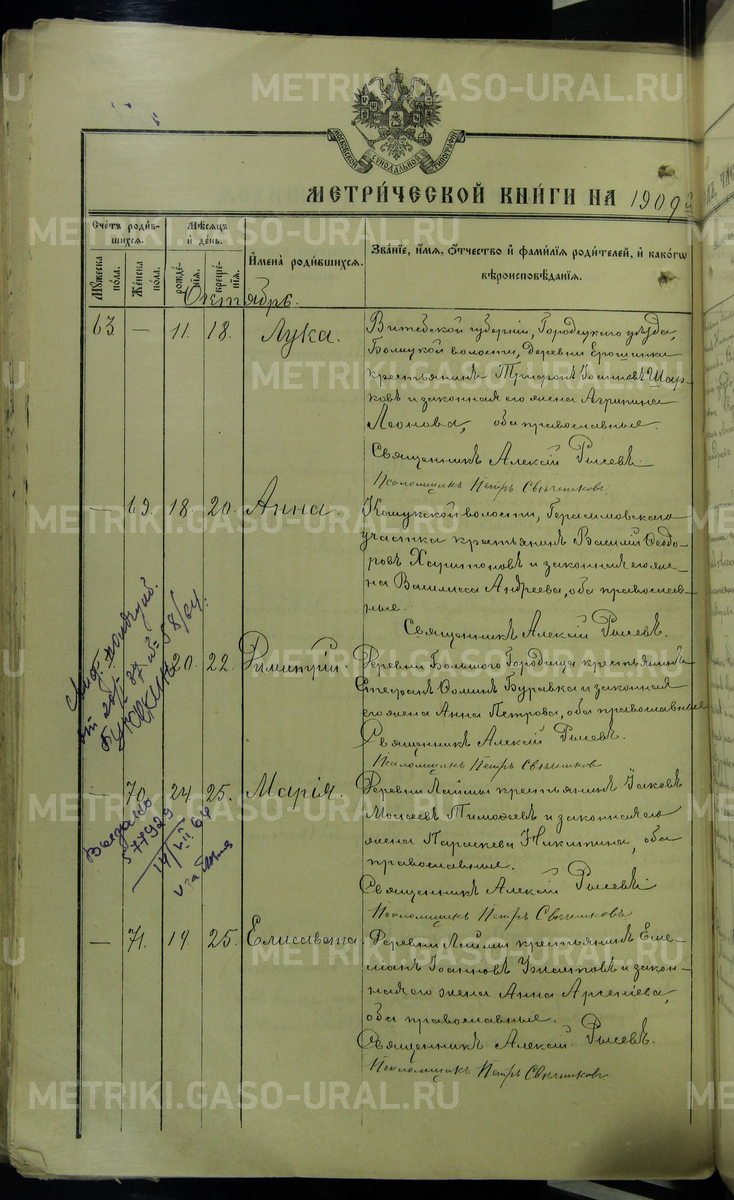 МОСКОВСКОЙ СѴНОДАЛЬНОЙ ТИПОГРАФІИ
МЕТРИ́ЧЕСКОЙ КНИ́ГИ НА 1909
Сче́тъ роди́в-
шихся.
Мѣ́сяцъ
и҆ де́нь.
И҆мена̀ роди́вшихся.
Зва́нїе, и҆́мя, ѻ҆́тчество и҆ фами́лїя роди́телей, и҆ како́гѡ
вѣроисповѣ́данїя.
Му́жеска
по́ла.
Же́нска
по́ла.
рожде́-
нїя.
креще́-
нїя.
Октябрь.
63 — 11. 18. Лука. Витебской губерніи, Городецкаго уѣзда,
волости, деревни Ерошенки
крестьянинъ Трифонъ Іоанновъ Шар-
ковъ и законная его жена Агрипина
Леонова, оба православные.
Священникъ Алексій Рысевъ.
Псаломщикъ Петръ Свѣчниковъ.
— 69. 18. 20. Анна. Кошукской волости, Герасимовскаго
участка крестьянинъ Василій Ѳеодо-
ровъ Харитоновъ и законная его же-
на Василиса Андреева, оба православ-
ные.
Священникъ Алексій Рысевъ.
20. 22. Димитрій. Деревни Большого Городища крестьянинъ
Стефанъ Ѳоминъ Буравка и законная
его жена Анна Петрова, оба православные
Священникъ Алексій Рысевъ.
Псаломщикъ Петръ Свѣчниковъ
— 70. 24. 25. Марія. Деревни Лаймы крестьянинъ Іаковъ
Моисеевъ Тимоѳеевъ и законная его
жена Параскева Никитина, оба
православные.
Священникъ Алексій Рысевъ
Псаломщикъ Петръ Свѣчниковъ
— 71. 14. 25. Елисавета. Деревни Лаймы крестьянинъ Еме-
ліанъ Іоанновъ и закон-
ная его жена Анна Арсеніева,
оба православные.
Священникъ Алексій Рысевъ.
Псаломщикъ Петръ Свѣчниковъ
58/64.
Выдано
577929
14/VII 64
METRIKI.GASO-URAL.RU